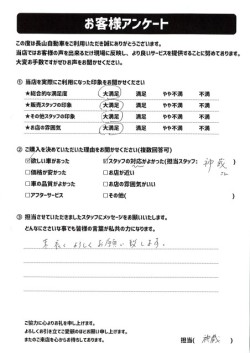 お客様アンケート
この度は長山自動車をご利用いただき誠にありがとうございます。
当店ではお客様の声を出来るだけ現場に反映し、より良いサービスを提供することに努めております。
大変お手数ですがぜひお声をお聞かせください。
① 当店を実際にご利用になった印象をお聞かせください
★総合的な満足度 大満足 満足 やや不満 不満
★販売スタッフの印象 大満足 満足 やや不満 不満
★スタッフの対応 大満足 満足 やや不満 不満
★お店の雰囲気 大満足 満足 やや不満 不満
② ご購入を決めていただいた理由をお聞かせください(複数回答可)
☑欲しい車があった ☑スタッフの対応がよかった(担当スタッフ: )
□価格が安かった □お店が近い
□車の品質がよかった □お店の雰囲気がよかった
□アフターサービス □その他(
③ 担当させていただきましたスタッフにメッセージをお願いいたします。
どんなにささいな事でも皆様の言葉が私共の力になります。
末永くよろしくお願い致します。
ご協力に心よりお礼を申し上げます。
よろしくお引き立てご愛顧のほどお願い申し上げます。
またのご来店を心からお待ちしております。
担当( )